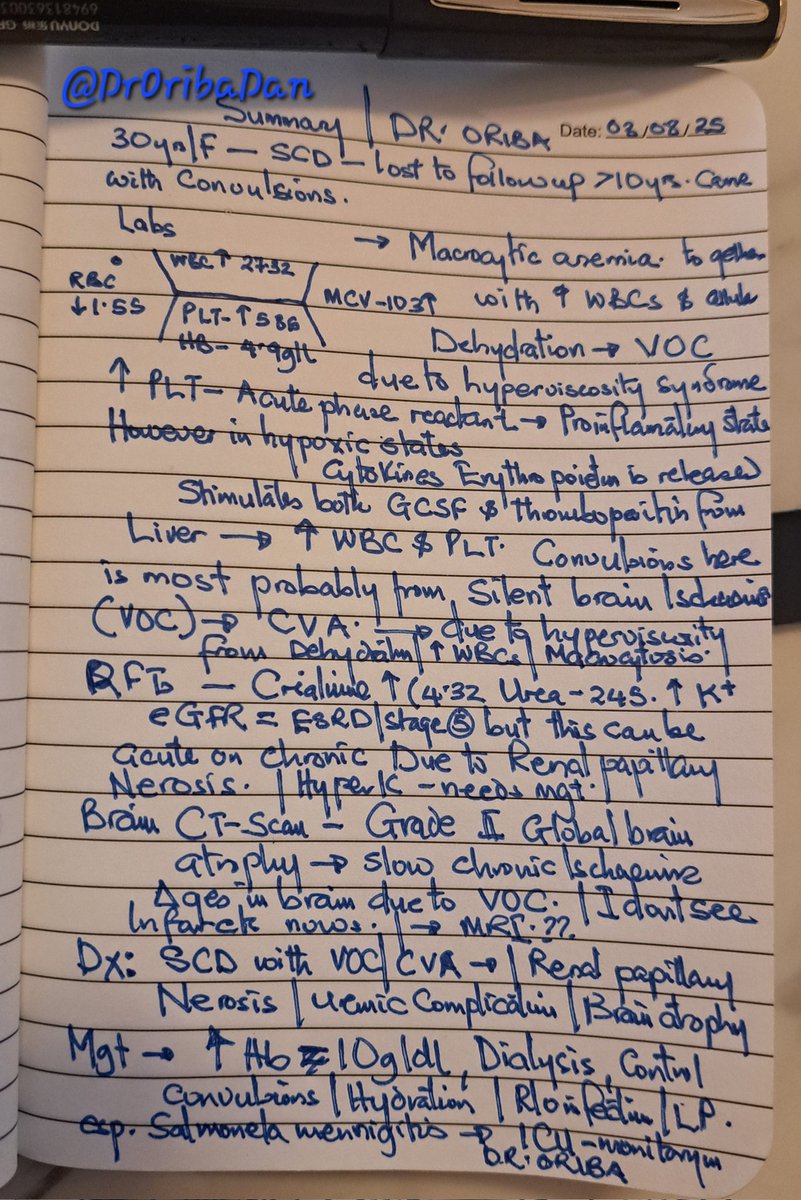 6948136950035
DONYU
@DrOribaDan
Summary | DR: ORIBA Date: 02/08/25
30yrs/F — SCD — lost to followup >10yrs. Came
with Convulsions.
Labs
→ Macrocytic anemia. to gether
RBC WBC ↑ 27.32
↓1.55 MCV-103↑ with ↑ WBCs &
PLT-↑586
HB- 4.9g/L
Dehydration → VOC
due to hyperviscosity syndrome
↑ PLT- Acute phase reactant → Proinflamatiny state
However in hypoxic states
Cytokines Erythropoietin is released
Stimulates both GCSF & thombopoeitin from
Liver → ↑ WBC & PLT. Convulsions here
is most probably from, Silent brain Ischaemia
(VOC) → CVA. → due to hyperviscosity
from Dehydratn | ↑ WBCs | Macrocytosis.
RFTs — Criatinine ↑ (4.32 Urea-245. ↑ K+
eGFR = ESRD/stage ⑤ but this can be
acute on chronic Due to Renal papillary
Nerosis. | HyperK - needs mgt.
Brain CT-Scan - Grade II Global brain
atrophy → slow chronic Ischaemic
Δges in brain due to VOC. | I dont see
Infarct nows. | → MRI.??
Dx: SCD with VOC/CVA → | Renal papillary
Nerosis | uemic Complicatiin | Brain atrophy
Mgt → ↑ Hb 10g/dl, Dialysis, Control
convulsions | Hydration | R/o infectin | LP.
esp. Salmonela mennigitis → ICU-monitorym
DR: ORIBA